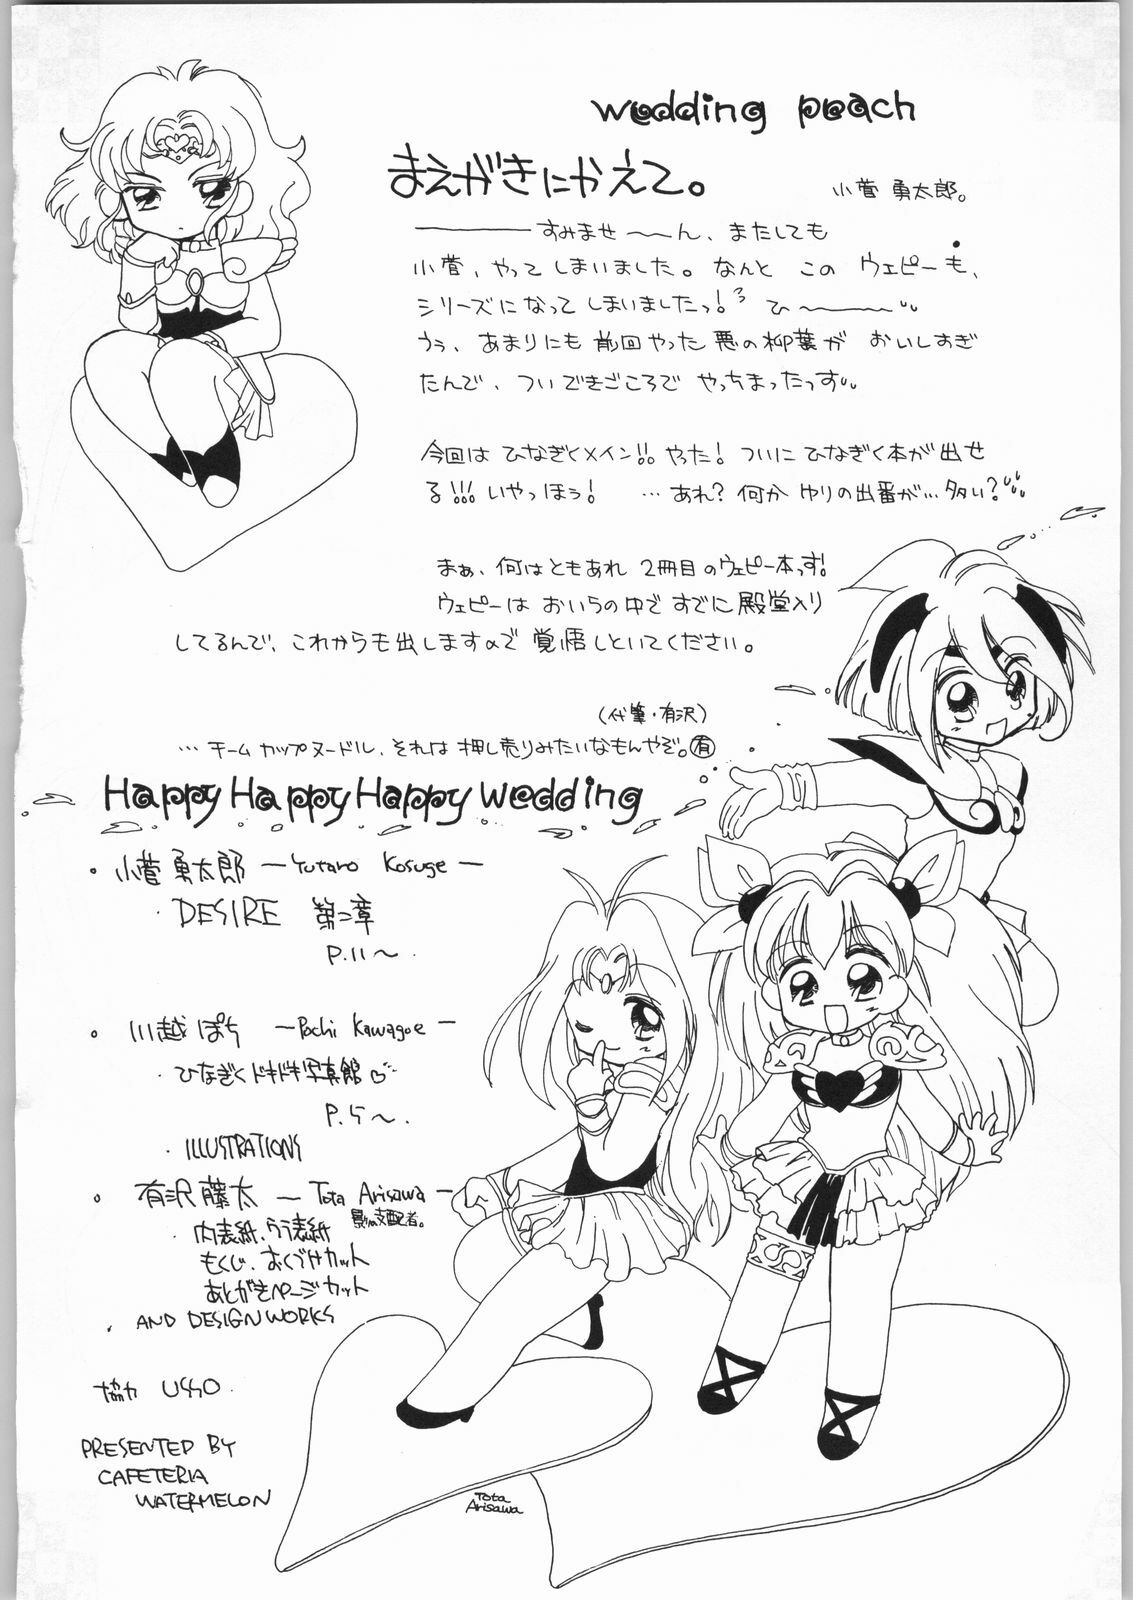 wedding peach
まえがきにかえて。
小菅 勇太郎。
————すみませ〜〜ん、またしても
小菅、やってしまいました。なんと この ウェピーも、
シリーズになってしまいましたっ! ひ————
うぅ、あまりにも前回やった悪の柳葉が おいしすぎ
たんで、ついできごころで やっちまったっす
今回は ひなぎくメイン!! やった! ついに ひなぎく本が出せ
る!!! いやっほう! …あれ? 何か ゆりの出番が…多い?
まぁ、何はともあれ 2冊目のウェピー本っす!
ウェピーは おいらの中で すでに殿堂入り
してるんで、これからも出しますので 覚悟しといてください。
(代筆・有沢)
…チーム カップヌードル、それは 押し売りみたいなもんやぞ。㊒
Happy Happy Happy wedding
・小菅 勇太郎 —Yutaro Kosuge—
・DESIRE 第二章
P.11〜
・川越 ぽち —Pochi Kawagoe—
・ひなぎくドキドキ写真館♡
P.5〜.
・ILLUSTRATIONS
・有沢 藤太 — Tota Arisawa —
影の支配者。
・内表紙、ウラ表紙
もくじ、おくづけカット
あとがきページカット
・AND DESIGN WORKS
協力 USO.
PRESENTED BY
CAFETERIA
WATERMELON
Tota
Arisawa